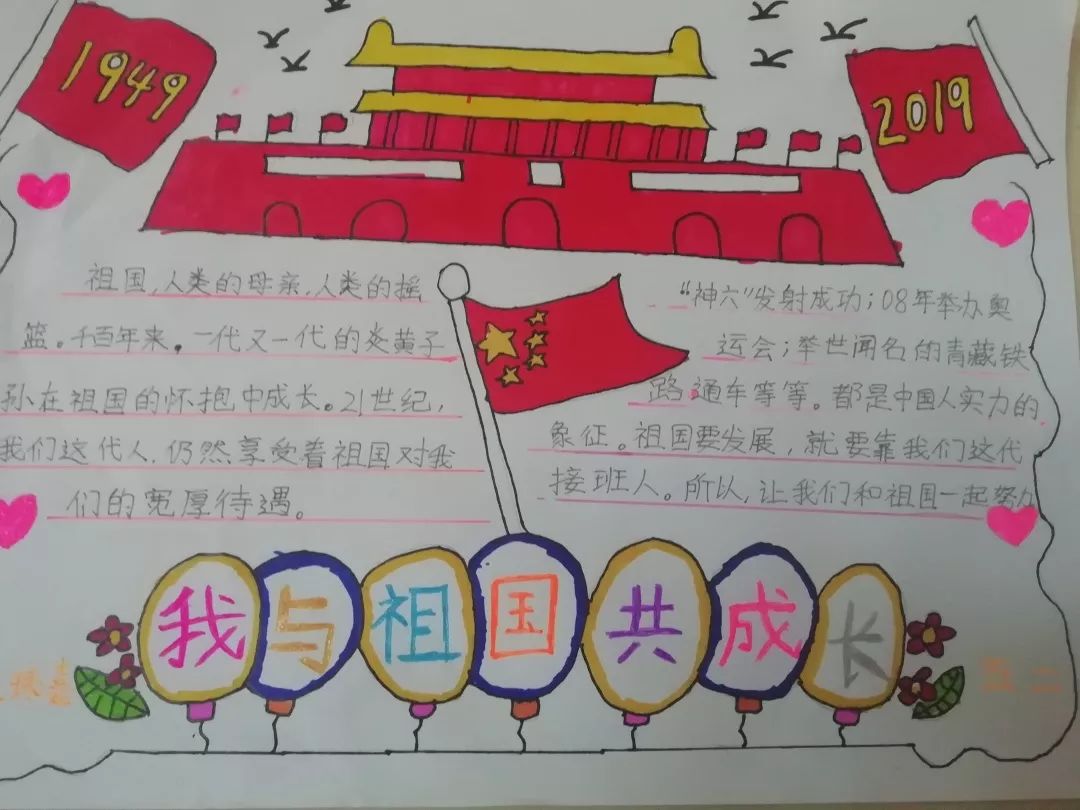 1949
2019
祖国,人类的母亲,人类的摇
篮。千百年来,一代又一代的炎黄子
孙在祖国的怀抱中成长。21世纪,
我们这代人,仍然享受着祖国对我
们的宽厚待遇。
“神六”发射成功;08年举办奥
运会;举世闻名的青藏铁
路通车等等。都是中国人实力的
象征。祖国要发展,就要靠我们这代
接班人。所以,让我们和祖国一起努力
我与祖国共成长
五二